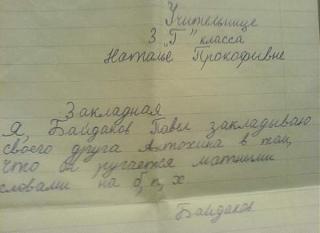 Учительнице
3 "Г" класса
Наталье Прокофьвне
Закладная
Я, Байдаков Павел закладываю
своего друга Антохина в том,
что он ругается матными
словами на б, п, х
Байдаков